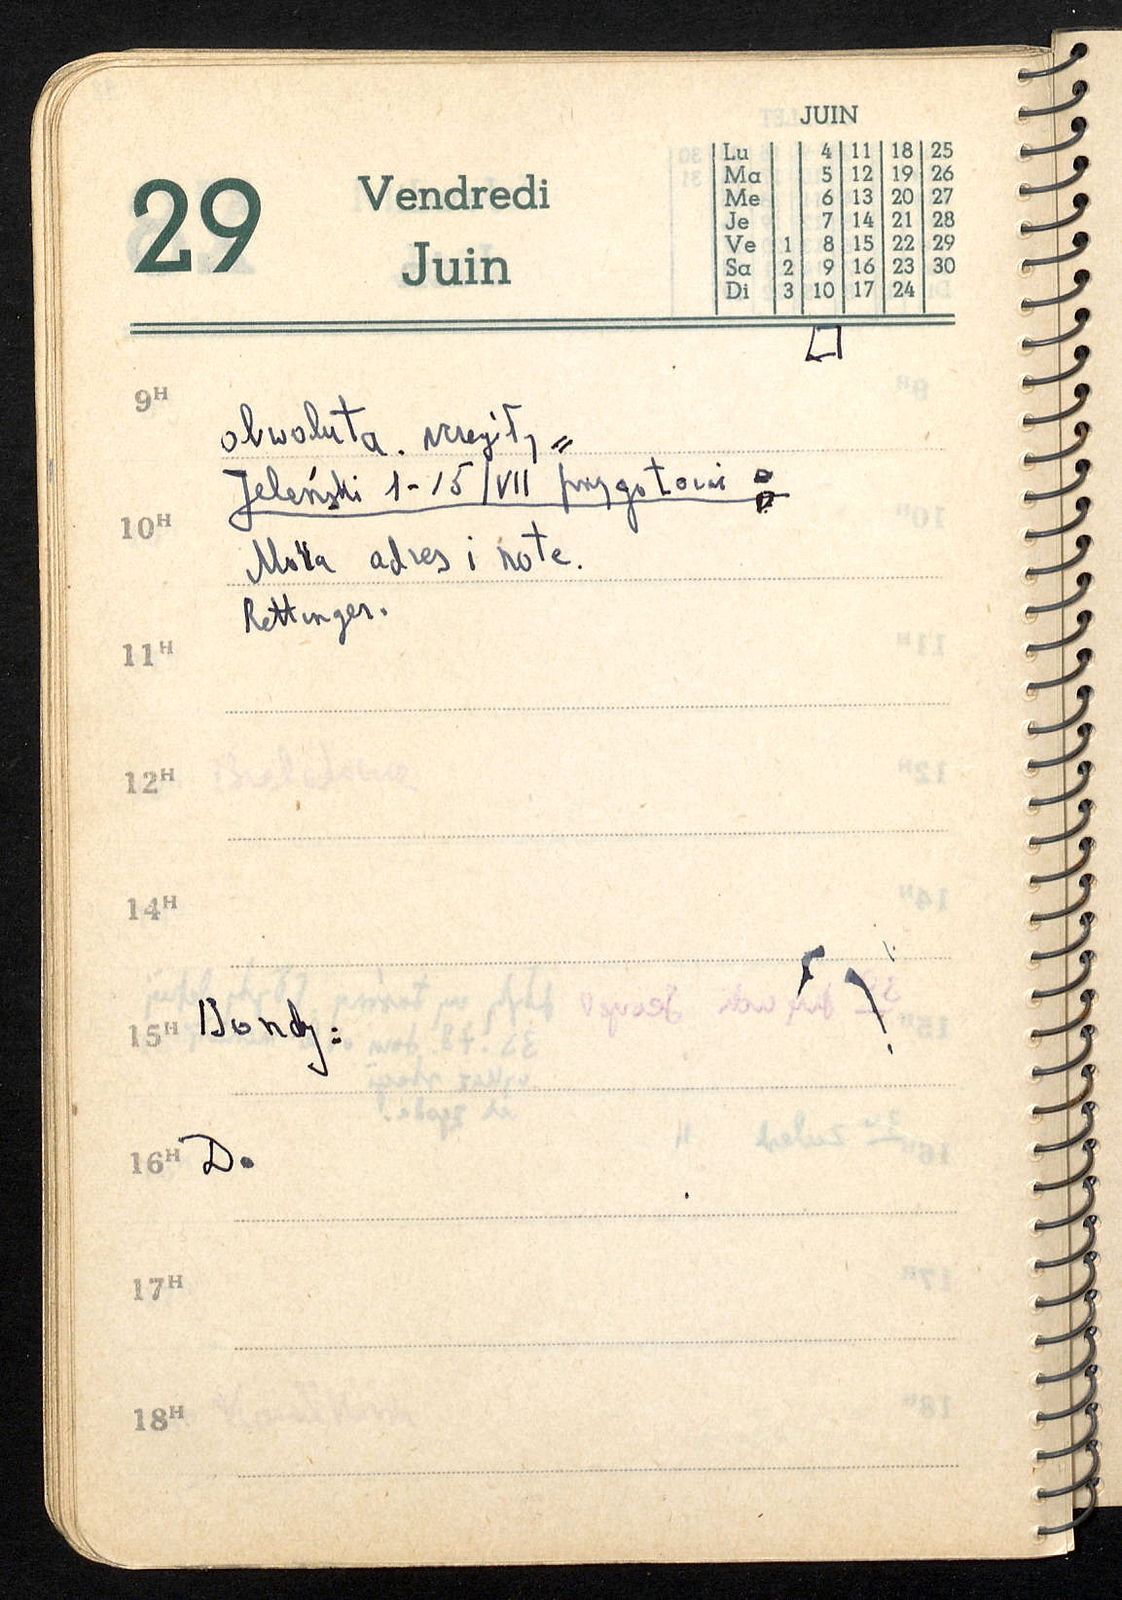 JUIN
29 Vendredi
Juin
Lu 4 11 18 25
Ma 5 12 19 26
Me 6 13 20 27
Je 7 14 21 28
Ve 1 8 15 22 29
Sa 2 9 16 23 30
Di 3 10 17 24
9H
obwoluta.
Jeleński 1-15/VII
10H
adres i note.
Rettinger.
11H
12H
14H
15H Bondy:
16H D.
17H
18H